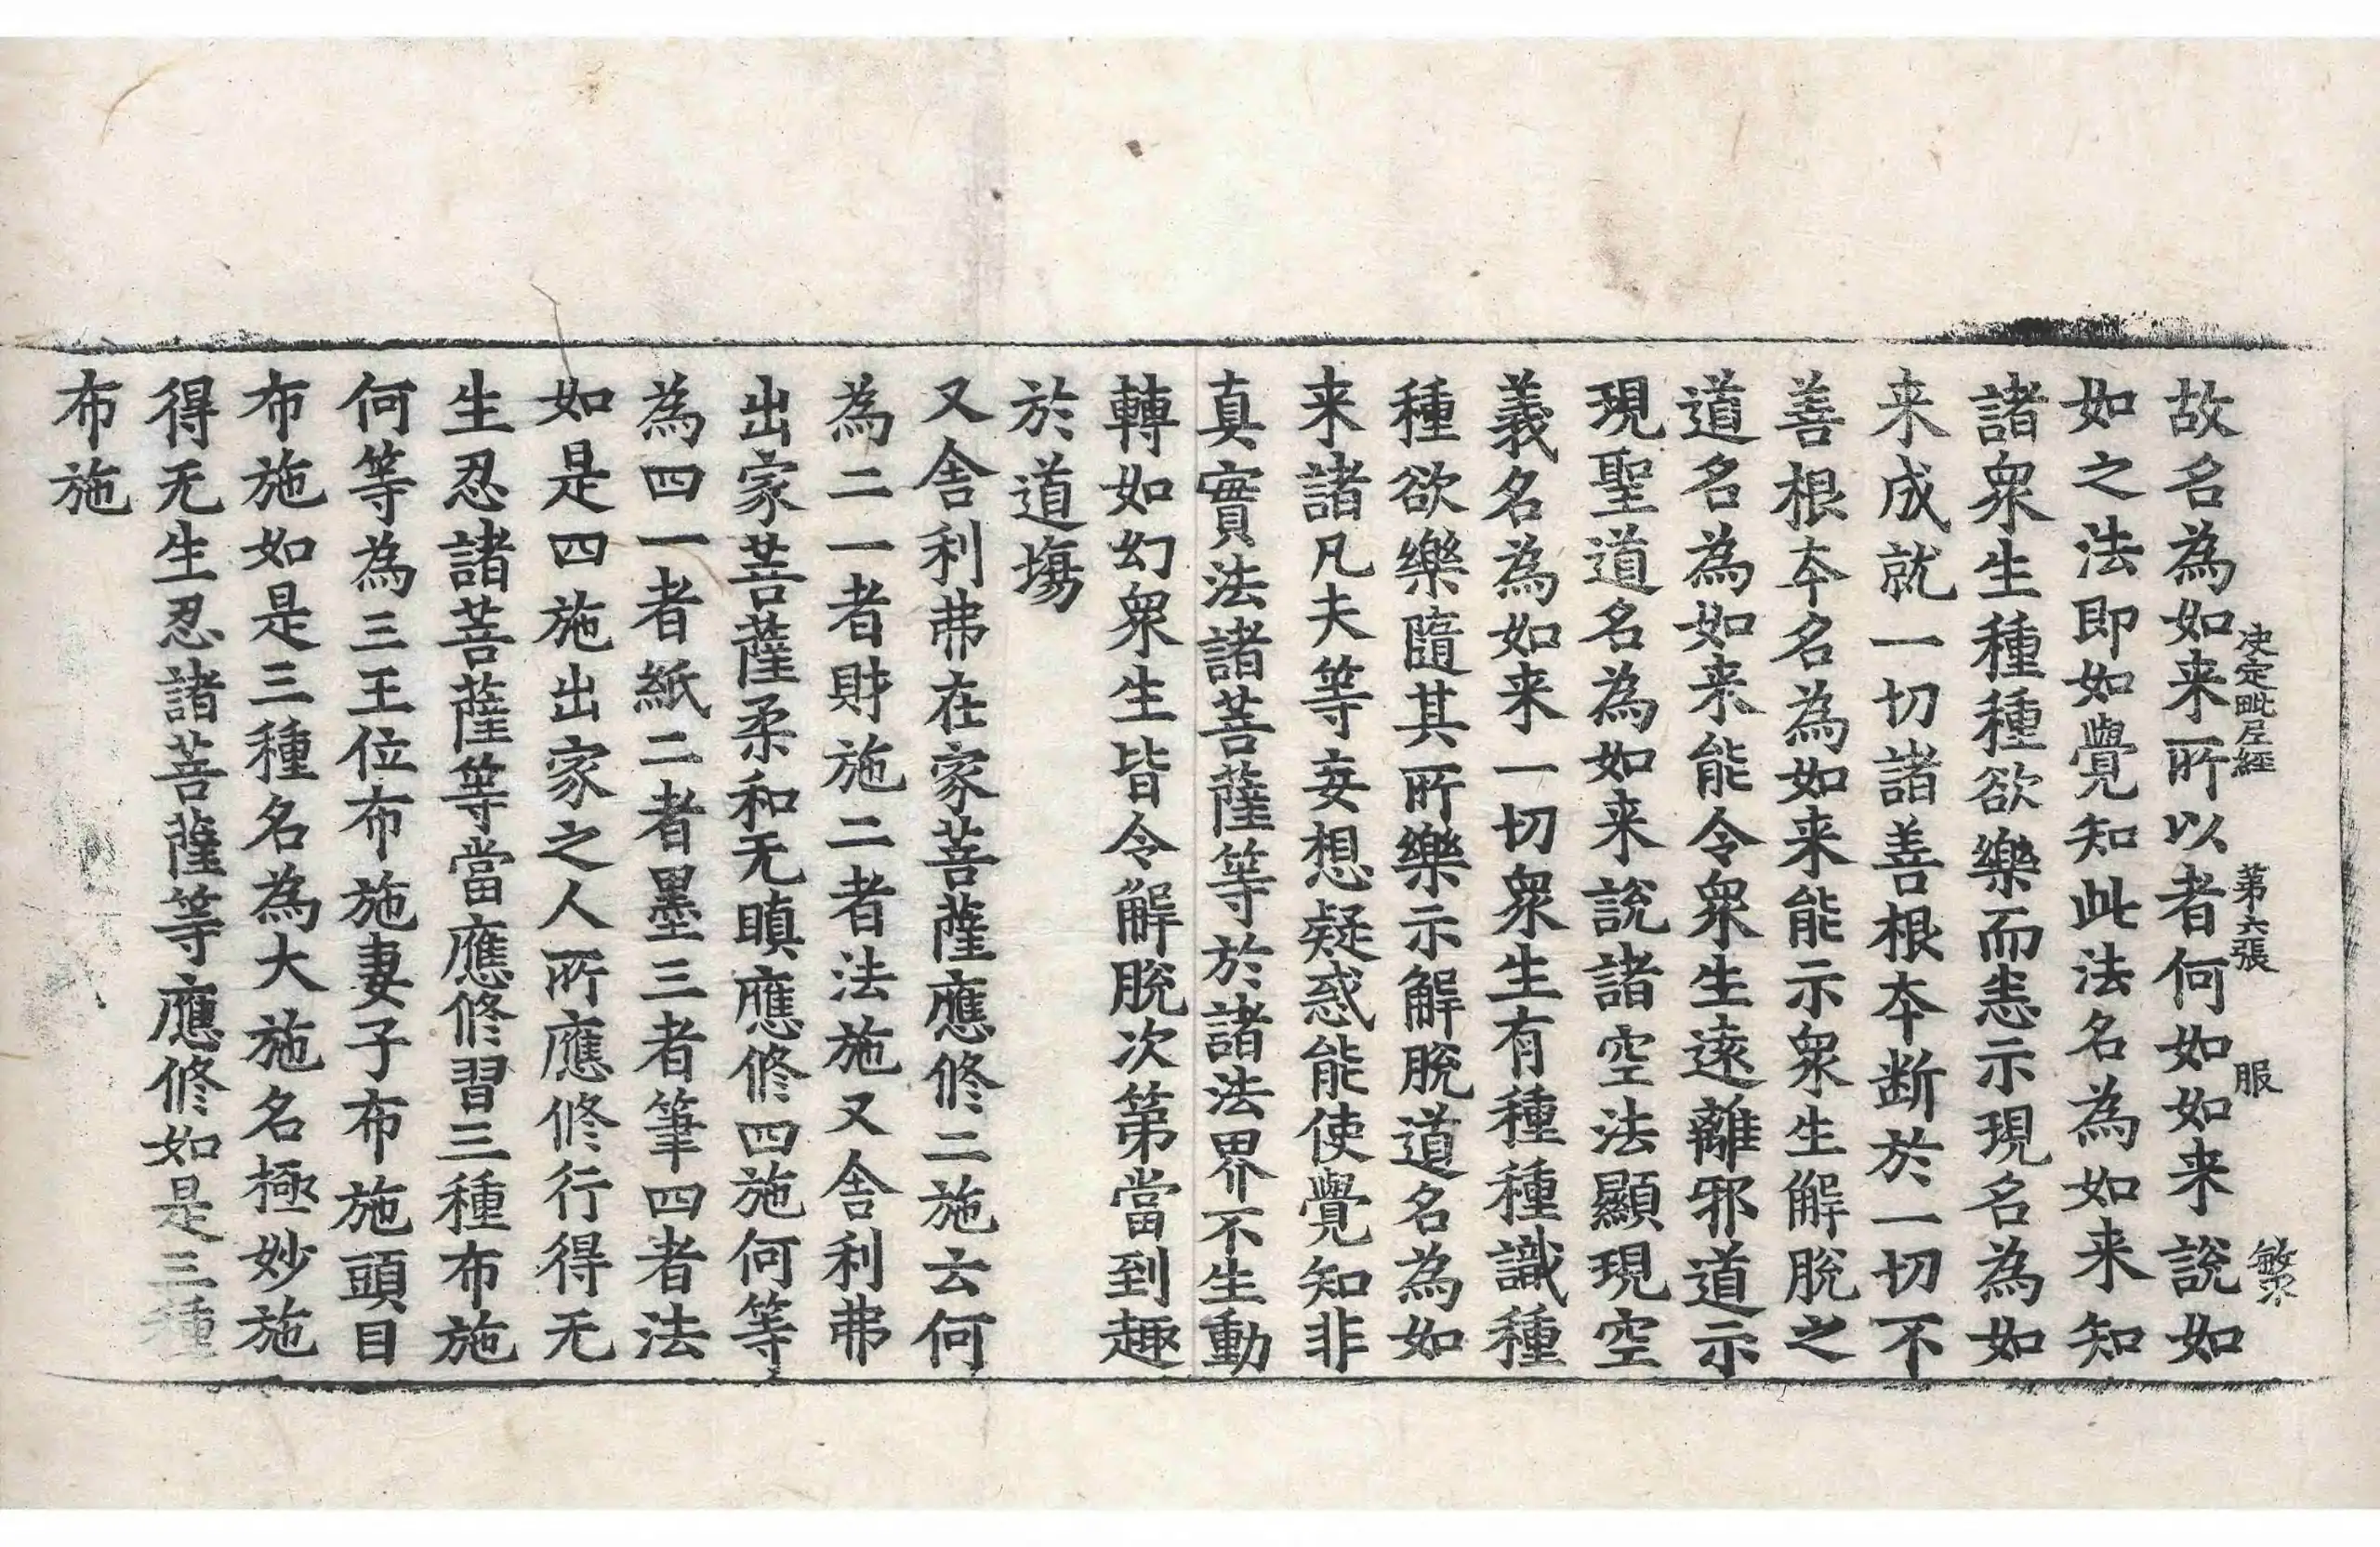 决定毗尼經 第六張 服 繁
故名為如来所以者何如如来說如
如之法即如覺知此法名為如来知
諸衆生種種欲樂而恚示現名為如
来成就一切諸善根本断於一切不
善根本名為如来能示衆生解脫之
道名為如来能令衆生遠離邪道示
現聖道名為如来說諸空法顯現空
義名為如来一切衆生有種種識種
種欲樂隨其所樂示解脫道名為如
来諸凡夫等妄想疑惑能使覺知非
真實法諸菩薩等於諸法界不生動
轉如幻衆生皆令解脫次第當到趣
於道塲
又舍利弗在家菩薩應修二施云何
為二一者財施二者法施又舍利弗
出家菩薩柔和无瞋應修四施何等
為四一者紙二者墨三者筆四者法
如是四施出家之人所應修行得无
生忍諸菩薩等當應修習三種布施
何等為三王位布施妻子布施頭目
布施如是三種名為大施名極妙施
得无生忍諸菩薩等應修如是三種
布施